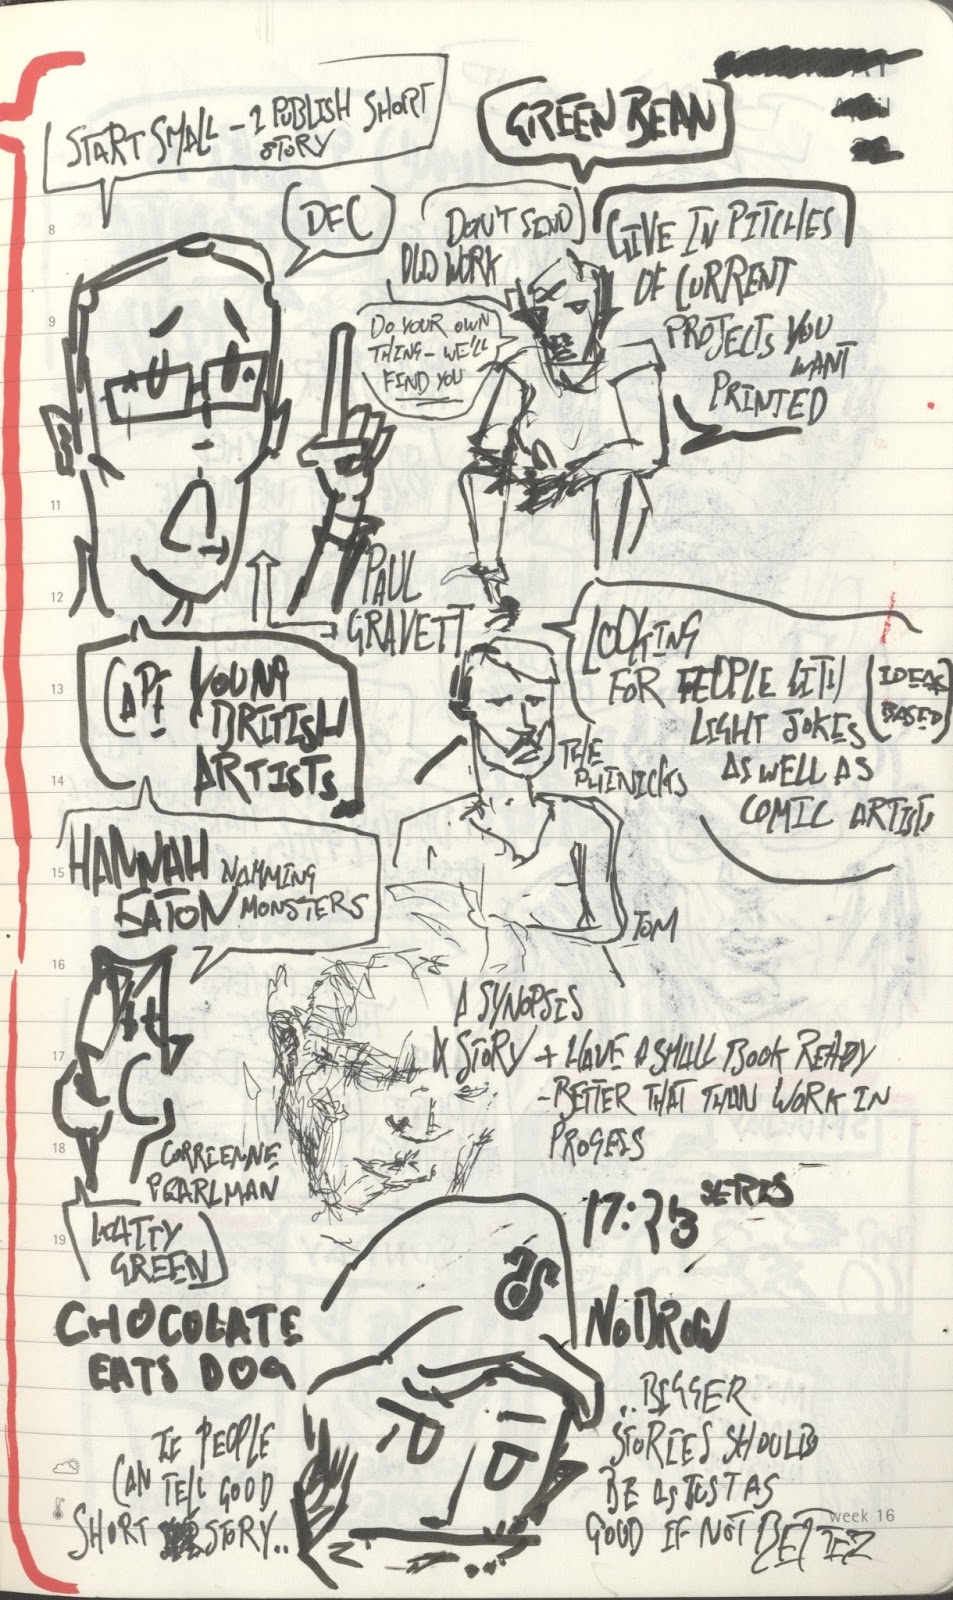 START SMALL - 1 PUBLISH SHORT
STORY
GREEN BEAN
DFC
DON'T SEND
OLD WORK
GIVE IN PITCHES
OF CURRENT
PROJECTS YOU
WANT
PRINTED
DO YOUR OWN
THING - WE'LL
FIND YOU
8
9
11
12
13
14
15
16
17
18
19
PAUL
GRAVETT
YOUNG
BRITISH
ARTISTS
LOOKING
FOR PEOPLE WITH
LIGHT JOKES
AS WELL AS
COMIC ARTISTS
(IDEAS
BASED)
THE
PHINICKS
TOM
HANNAH
EATON
NAMMING
MONSTERS
A SYNOPSIS
STORY + HAVE A SMALL BOOK READY
- BETTER THAT THAN WORK IN
PROGESS
CORRIENNE
PEARLMAN
GREEN
CHOCOLATE
EATS DOG
17:23 SERIS
NOBROW
IF PEOPLE
CAN TELL GOOD
SHORT STORY..
..BIGGER
STORIES SHOULD
BE AS JUST AS
GOOD IF NOT BETTER
week 16